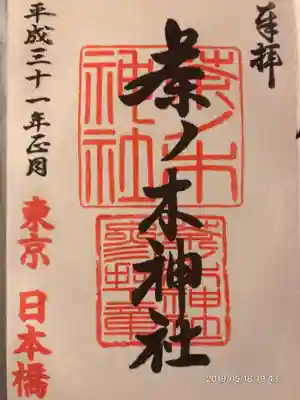 奉拝
茶ノ木神社
茶ノ木
神社
平成三十一年正月
東京 日本橋
2019/05/18 19:43